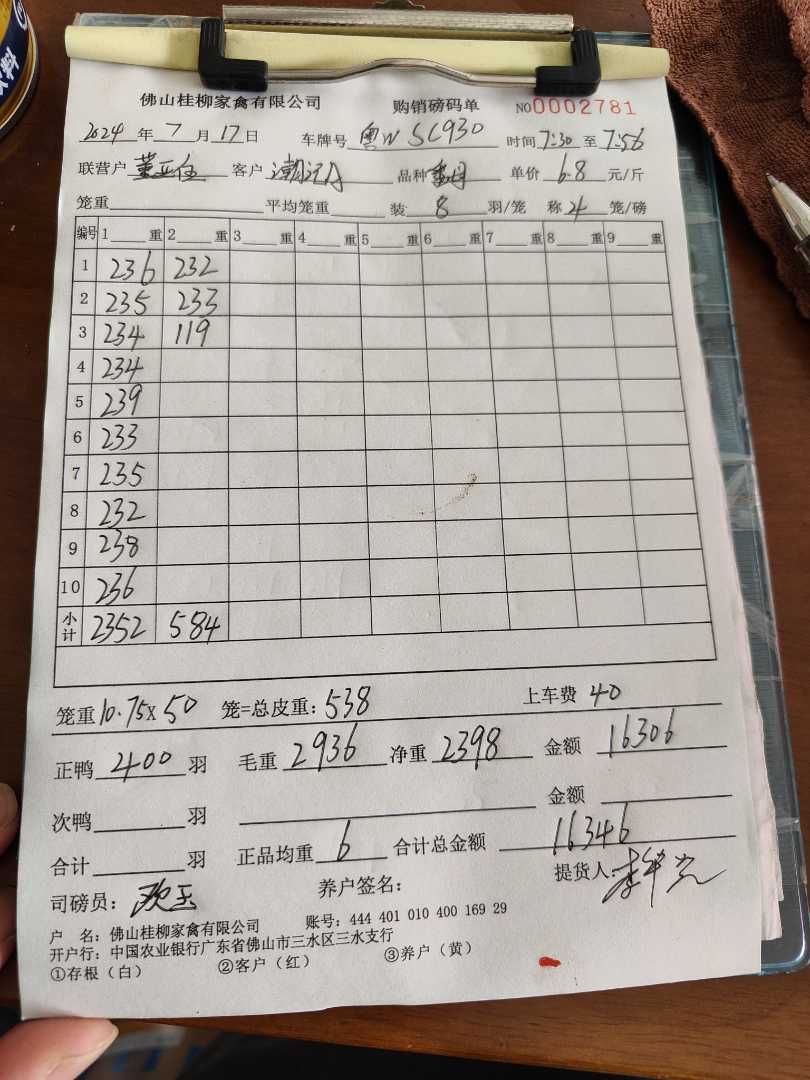 佛山桂柳家禽有限公司 购销磅码单 NO0002781
2024年7月17日 车牌号 粤W SC930 时间7:30至7:56
联营户 客户 品种 单价 6.8 元/斤
笼重 平均笼重 装 8 羽/笼 称 4 笼/磅
编号 1 重 2 重 3 重 4 重 5 重 6 重 7 重 8 重 9 重
1 236 232
2 235 233
3 234 119
4 234
5 239
6 233
7 235
8 232
9 238
10 236
小计 2352 584
笼重10.75X50 笼=总皮重:538 上车费 40
正鸭 400 羽 毛重 2936 净重 2398 金额 16306
次鸭 羽 金额
合计 羽 正品均重 6 合计总金额 16346
司磅员: 养户签名: 提货人:
户 名:佛山桂柳家禽有限公司 账号:444 401 010 400 169 29
开户行:中国农业银行广东省佛山市三水区三水支行
①存根(白) ②客户(红) ③养户(黄)